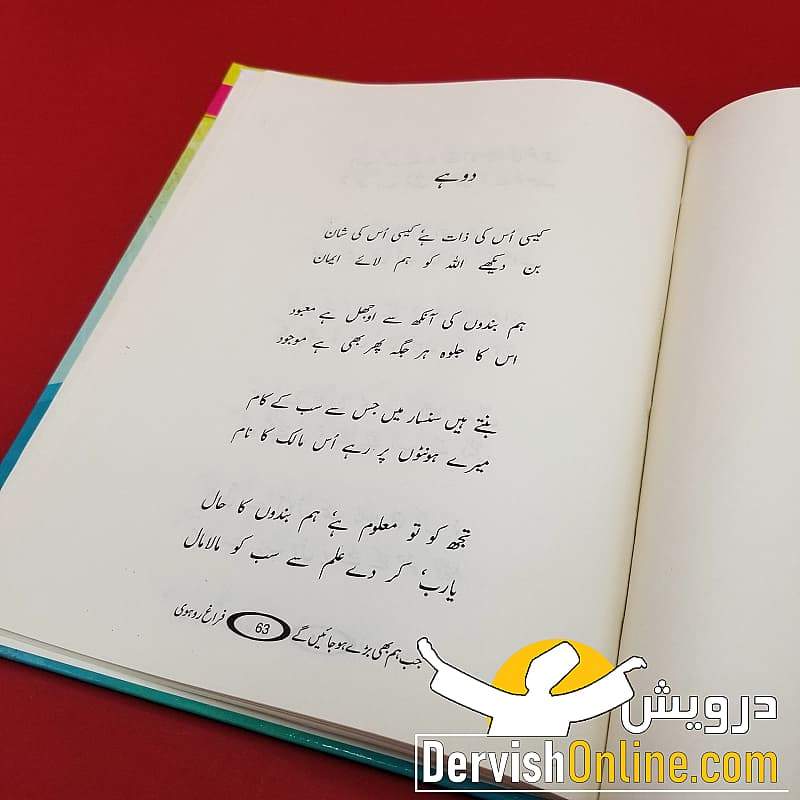 دوہے
کیسی اُس کی ذات ہے کیسی اُس کی شان
بن دیکھے اللہ کو ہم لائے ایمان
ہم بندوں کی آنکھ سے اوجھل ہے معبود
اس کا جلوہ ہر جگہ پھر بھی ہے موجود
بنتے ہیں سنسار میں جس سے سب کے کام
میرے ہونٹوں پر رہے اُس مالک کا نام
تجھ کو تو معلوم ہے ہم بندوں کا حال
یارب، کر دے علم سے سب کو مالامال
جب ہم بھی بڑے ہو جائیں گے 63 فراغ روہوی
درویش
DervishOnline.com